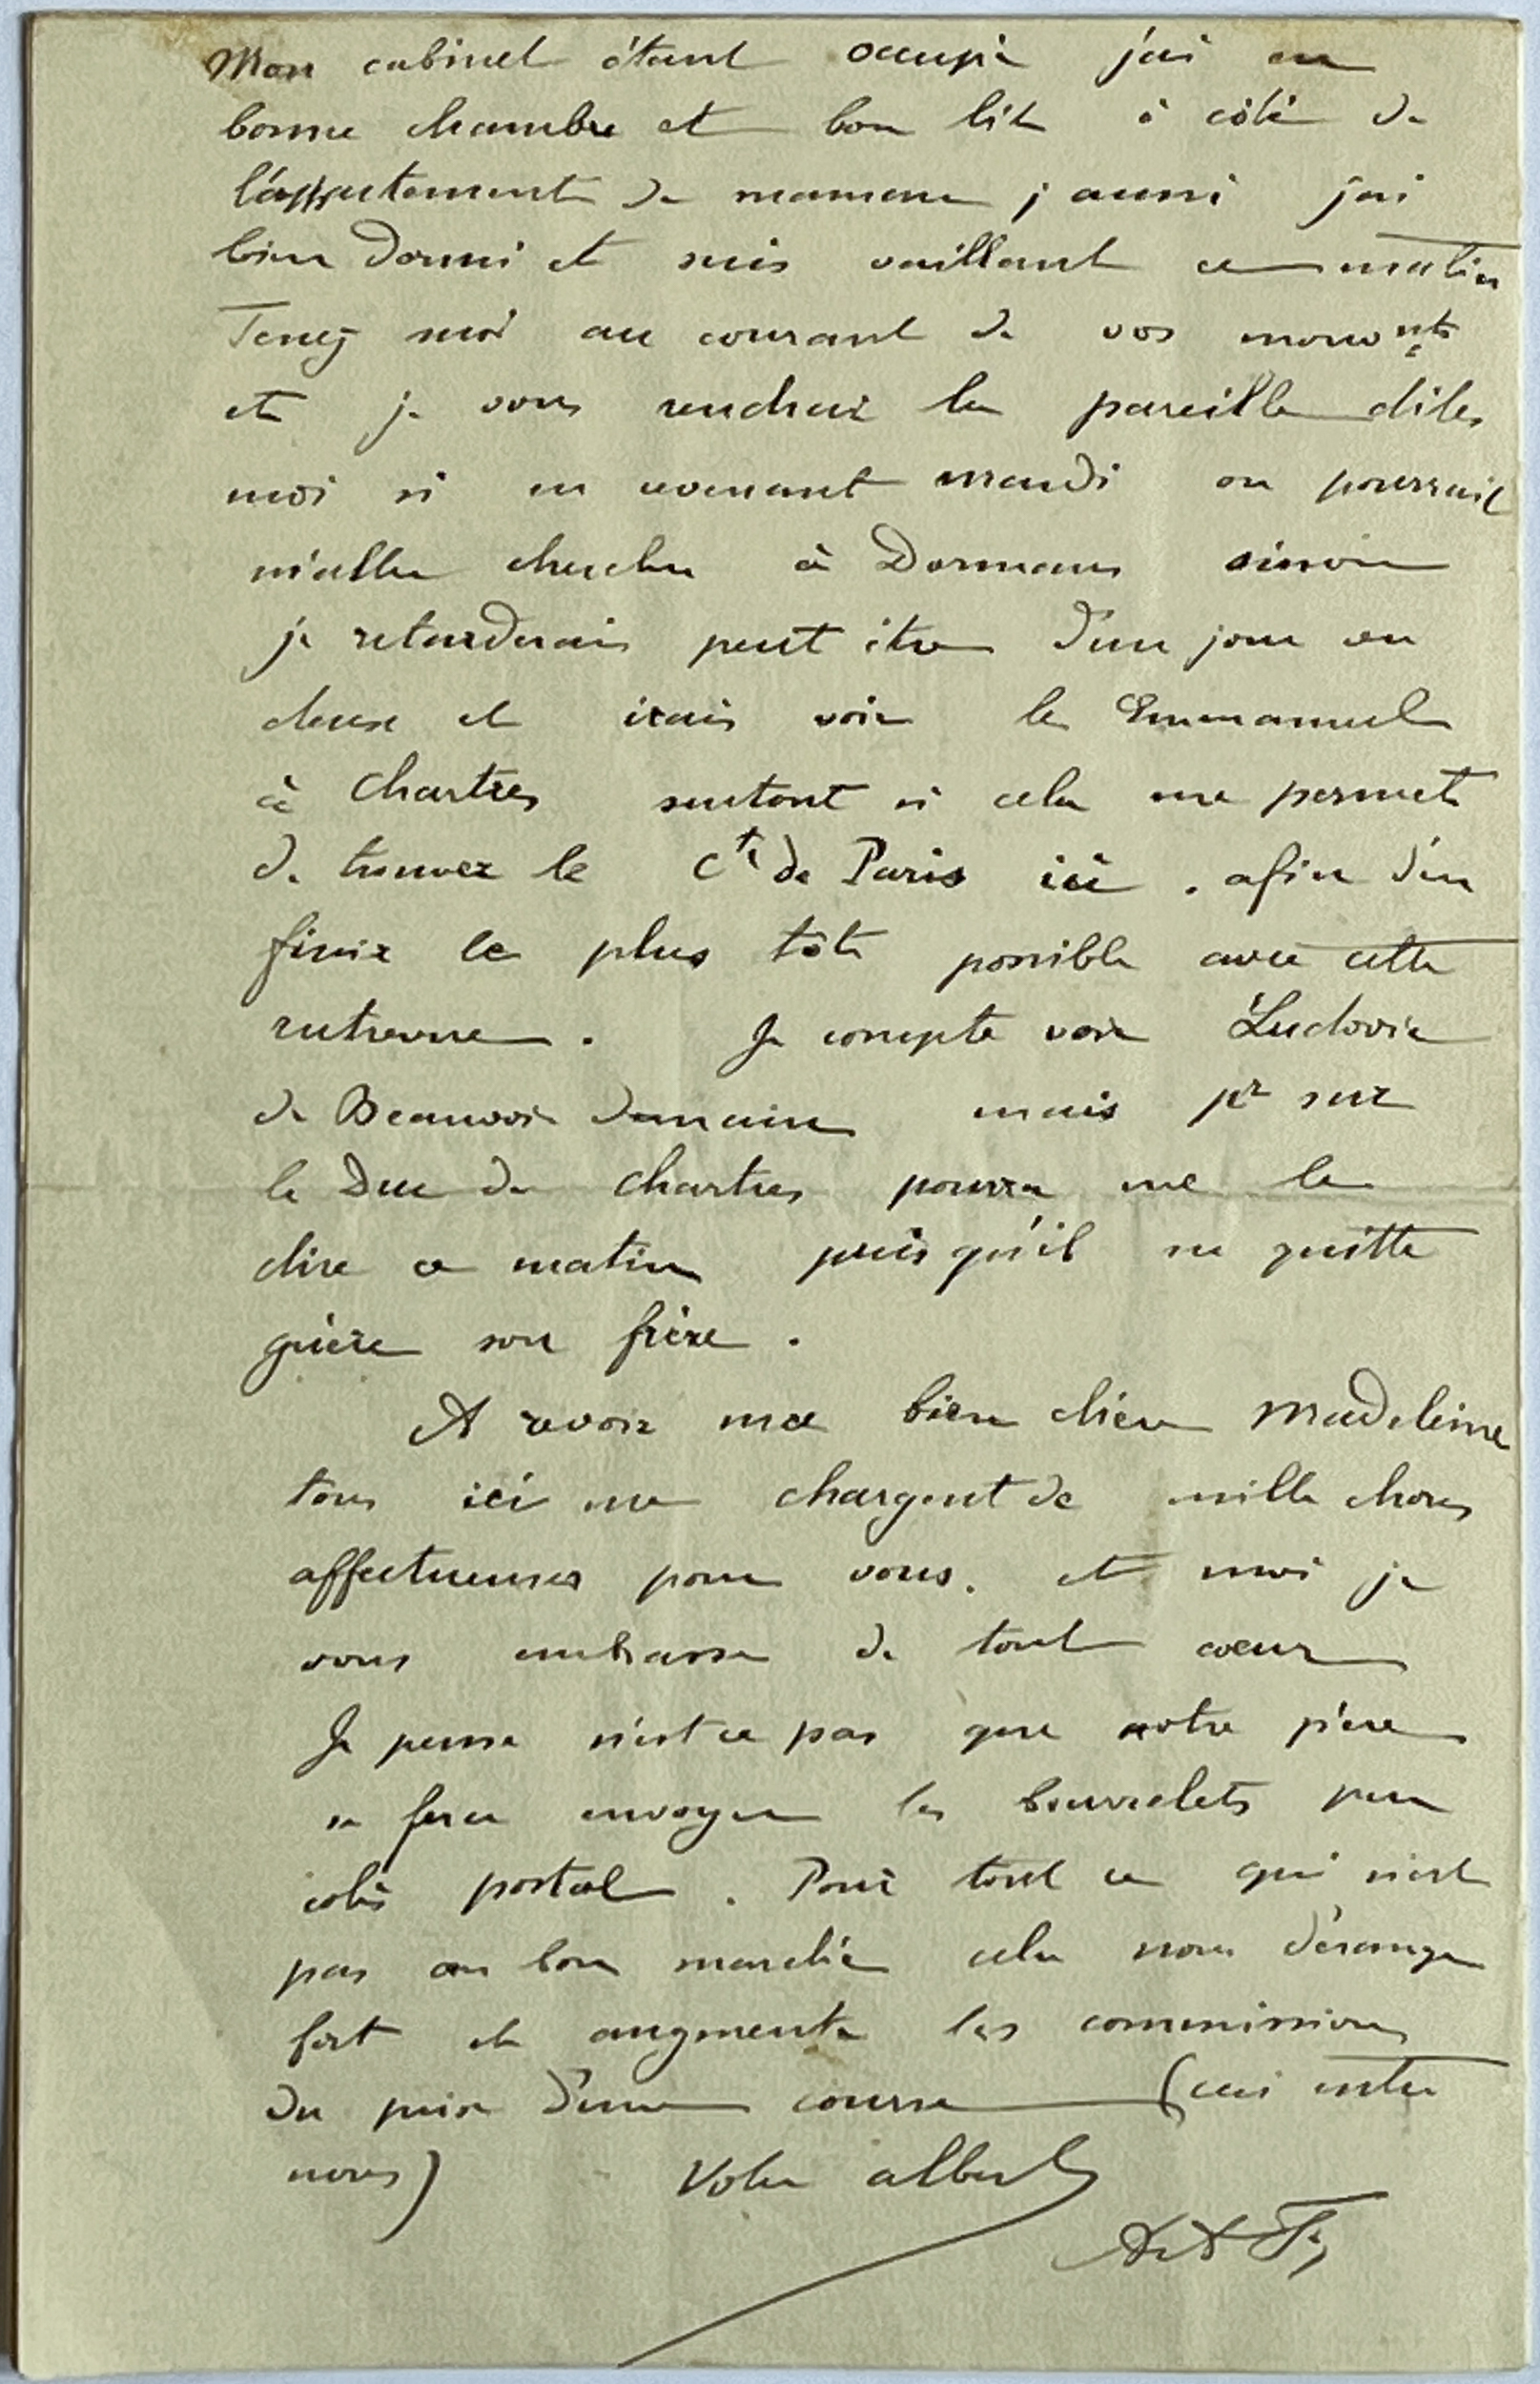 Mon cabinet étant occupé j'ai eu
bonne chambre et bon lit à côté de
l'appartement de maman ; aussi j'ai
bien dormi et suis vaillant ce matin
Tenez moi au courant de vos mouvnts
et je vous rendrai la pareille dites
moi si en revenant mardi on pourrait
m'aller chercher à Dormans sinon
je retarderais peut être d'un jour ou
deux et irais voir le Emmanuel
à Chartres surtout si cela me permet
de trouver le Cte de Paris ici . afin d'en
finir le plus tôt possible avec cette
entrevue . Je compte voir Ludovic
de Beauvoir demain mais pr sur
le Duc de Chartres pourra me le
dire ce matin puisqu'il ne quitte
guère son frère .
A revoir ma bien chère Madeleine
tous ici me chargent de mille choses
affectueuses pour vous. et moi je
vous embrasse de tout cœur
Je pense n'est ce pas que notre père
se fera envoyer les bourrelets par
colis postal . Pour tout ce qui n'est
pas au bon marché cela nous dérange
fort et augmente les commissions
du prix d'une course (ceci entre
nous) Votre Albert